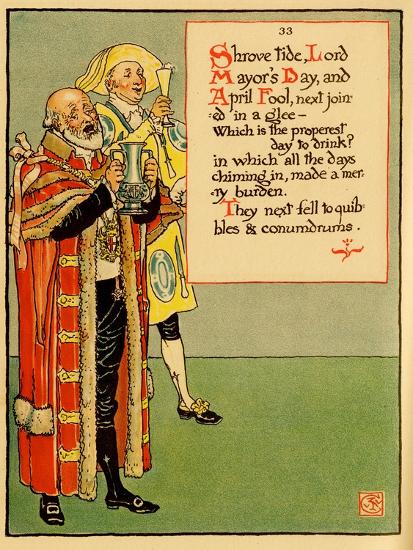 33
Shrove tide, Lord
Mayor's Day, and
April Fool, next join-
-ed in a glee—
Which is the properest
day to drink?
in which all the days
chiming in, made a mer-
ry burden.
They next fell to quib-
bles & conundrums.